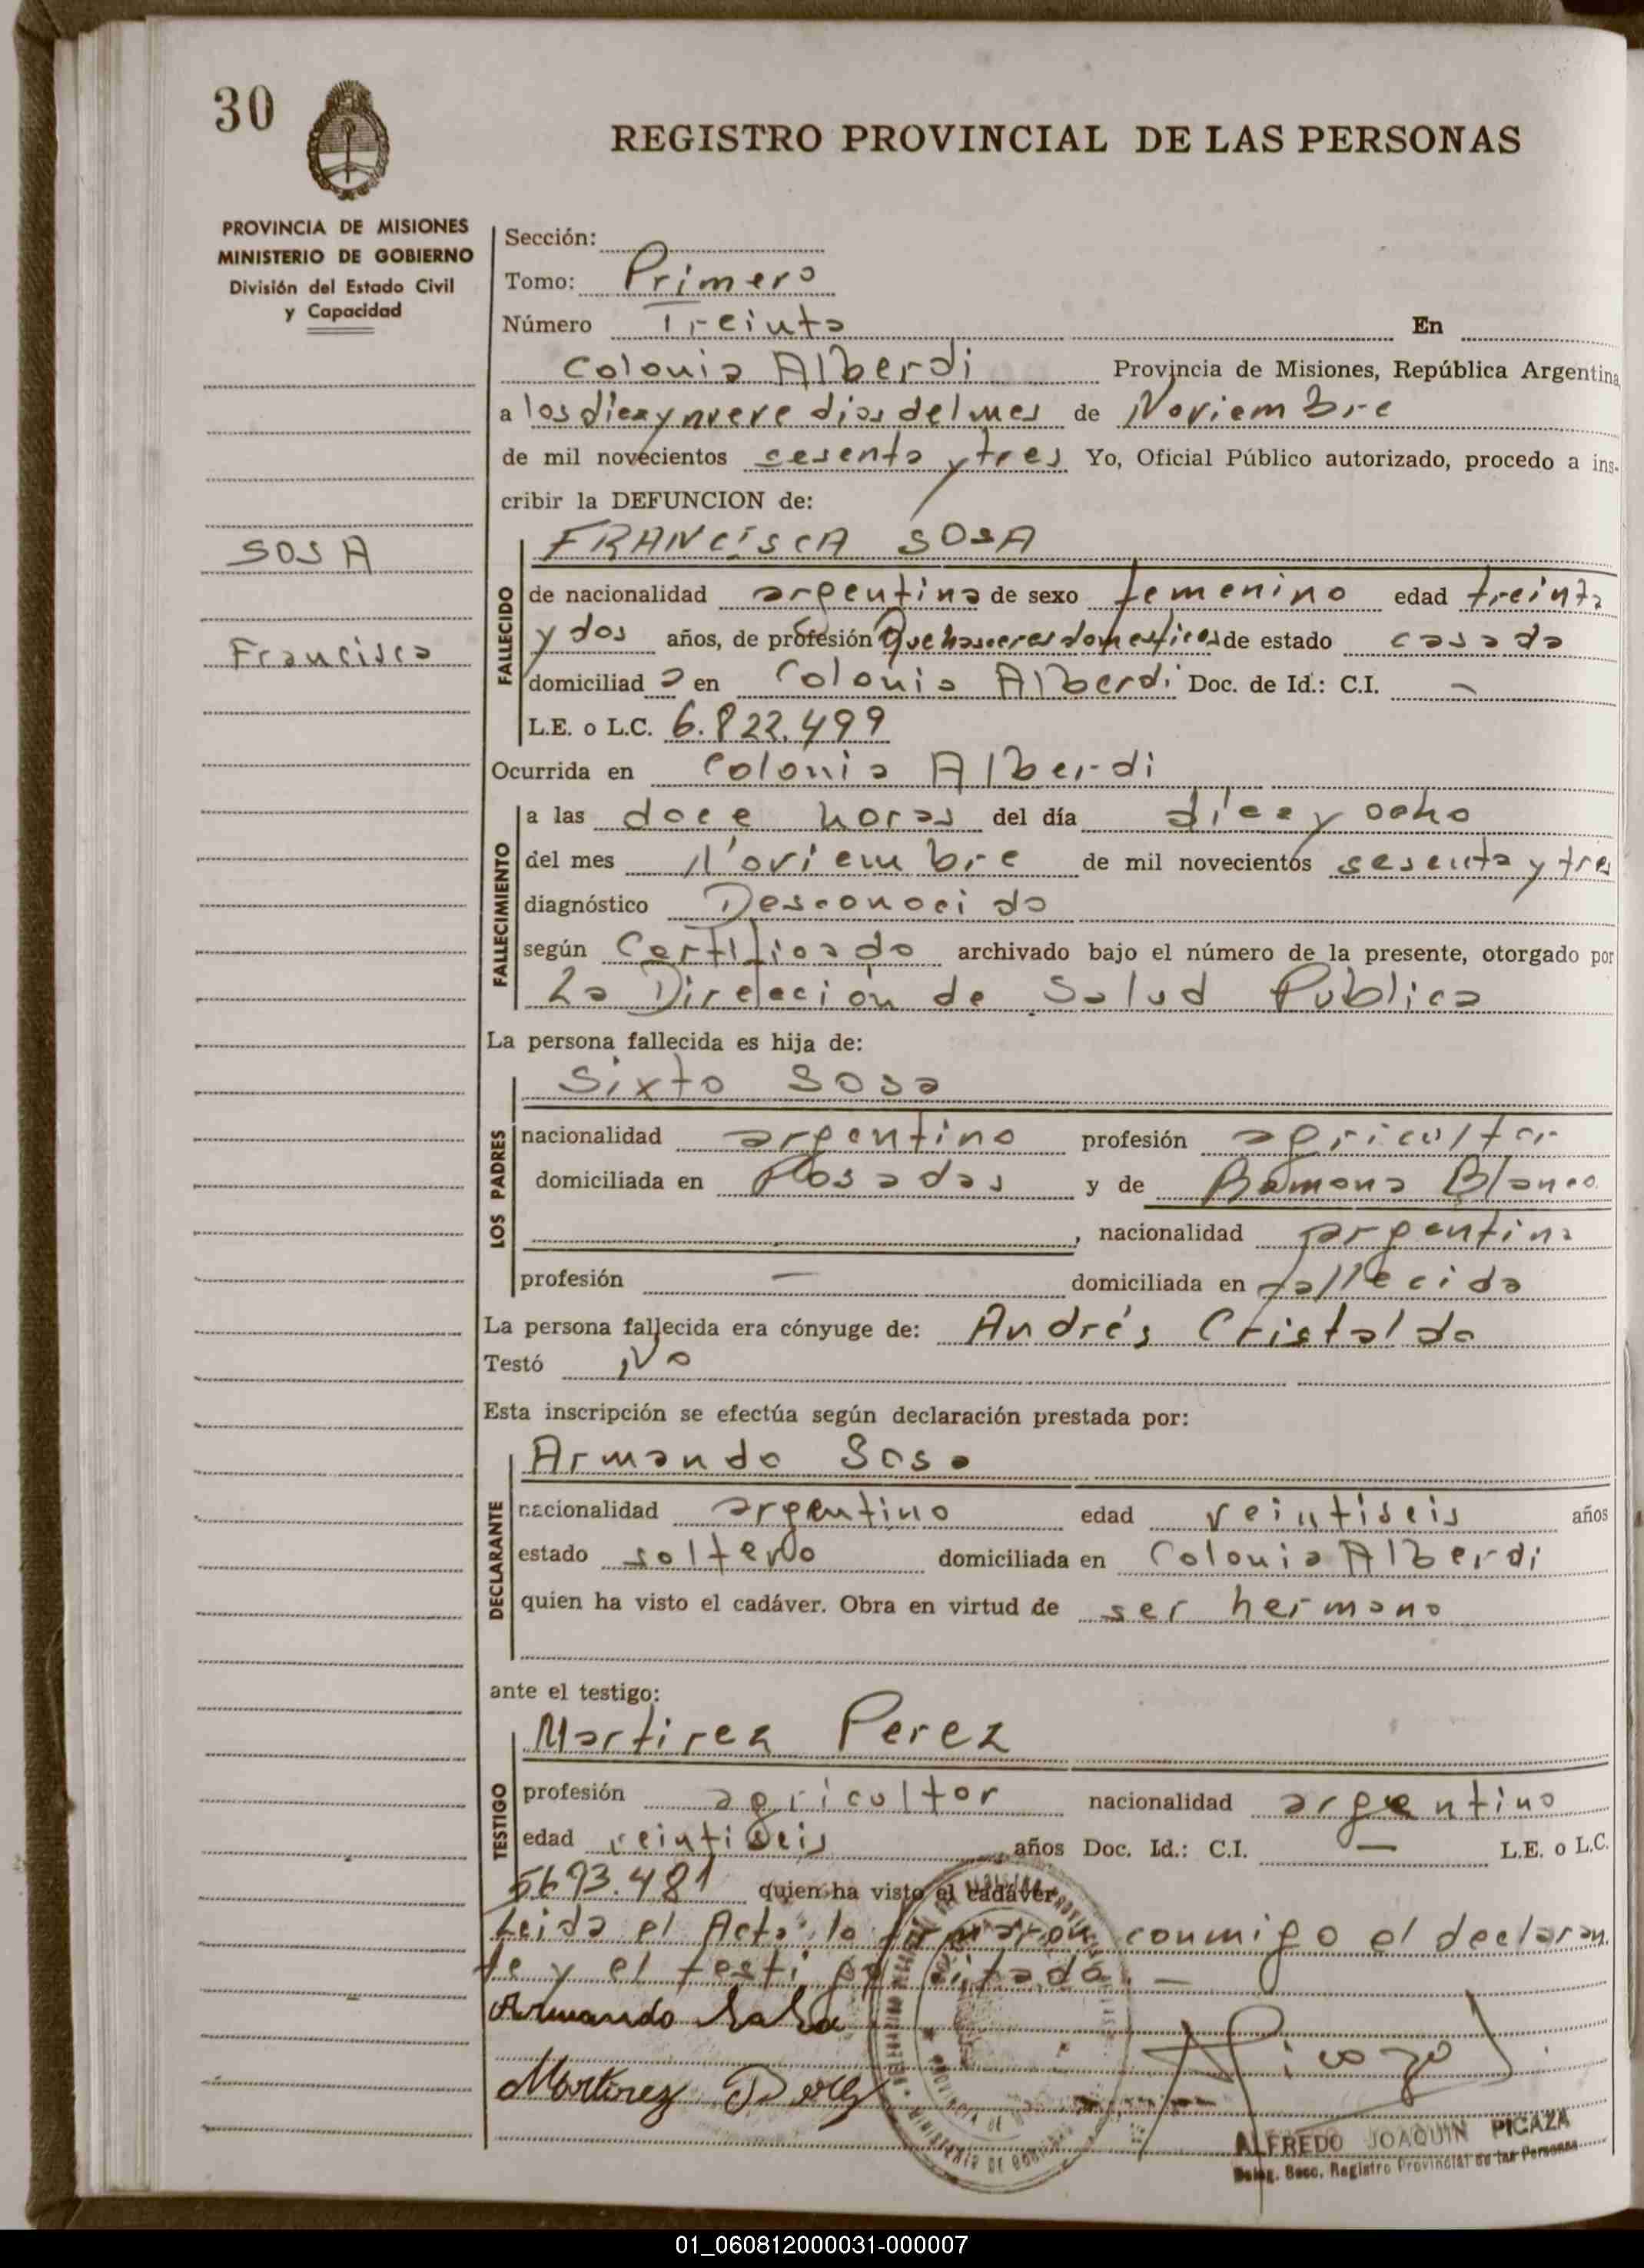 30
REGISTRO PROVINCIAL DE LAS PERSONAS
PROVINCIA DE MISIONES
MINISTERIO DE GOBIERNO
División del Estado Civil
y Capacidad
Sección:
Tomo: Primero
Número Treinta En
Colonia Alberdi Provincia de Misiones, República Argentina
a los diez y nueve dias del mes de Noviembre
de mil novecientos cesenta y tres Yo, Oficial Público autorizado, procedo a ins-
cribir la DEFUNCION de:
SOSA
Francisca
FALLECIDO
FRANCISCA SOSA
de nacionalidad argentina de sexo femenino edad treinta
y dos años, de profesión Quehasceres domesticos de estado casada
domiciliad a en Colonia Alberdi Doc. de Id.: C.I. -
L.E. o L.C. 6.822.499
Ocurrida en Colonia Alberdi
FALLECIMIENTO
a las doce horas del día diez y ocho
del mes Noviembre de mil novecientos sesenta y tres
diagnóstico Desconocido
según Certificado archivado bajo el número de la presente, otorgado por
La Direccion de Salud Publica
La persona fallecida es hija de:
LOS PADRES
Sixto Sosa
nacionalidad argentino profesión agricultor
domiciliada en Posadas y de Ramona Blanco
, nacionalidad argentina
profesión — domiciliada en fallecida
La persona fallecida era cónyuge de: Andrés Cristaldo
Testó No
Esta inscripción se efectúa según declaración prestada por:
DECLARANTE
Armando Sosa
nacionalidad argentino edad veintiseis años
estado soltero domiciliada en Colonia Alberdi
quien ha visto el cadáver. Obra en virtud de ser hermano
ante el testigo:
TESTIGO
Martirez Perez
profesión agricultor nacionalidad argentino
edad veintiseis años Doc. Id.: C.I. — L.E. o L.C.
5693.481 quien ha visto el cadáver
Leida el Acta, la firmaron conmigo el declaran
te y el testigo citado. —
Armando Sosa
Martirez Perez
Picaza
ALFREDO JOAQUIN PICAZA
Deleg. Secc. Registro Provincial de las Personas
01_060812000031-000007